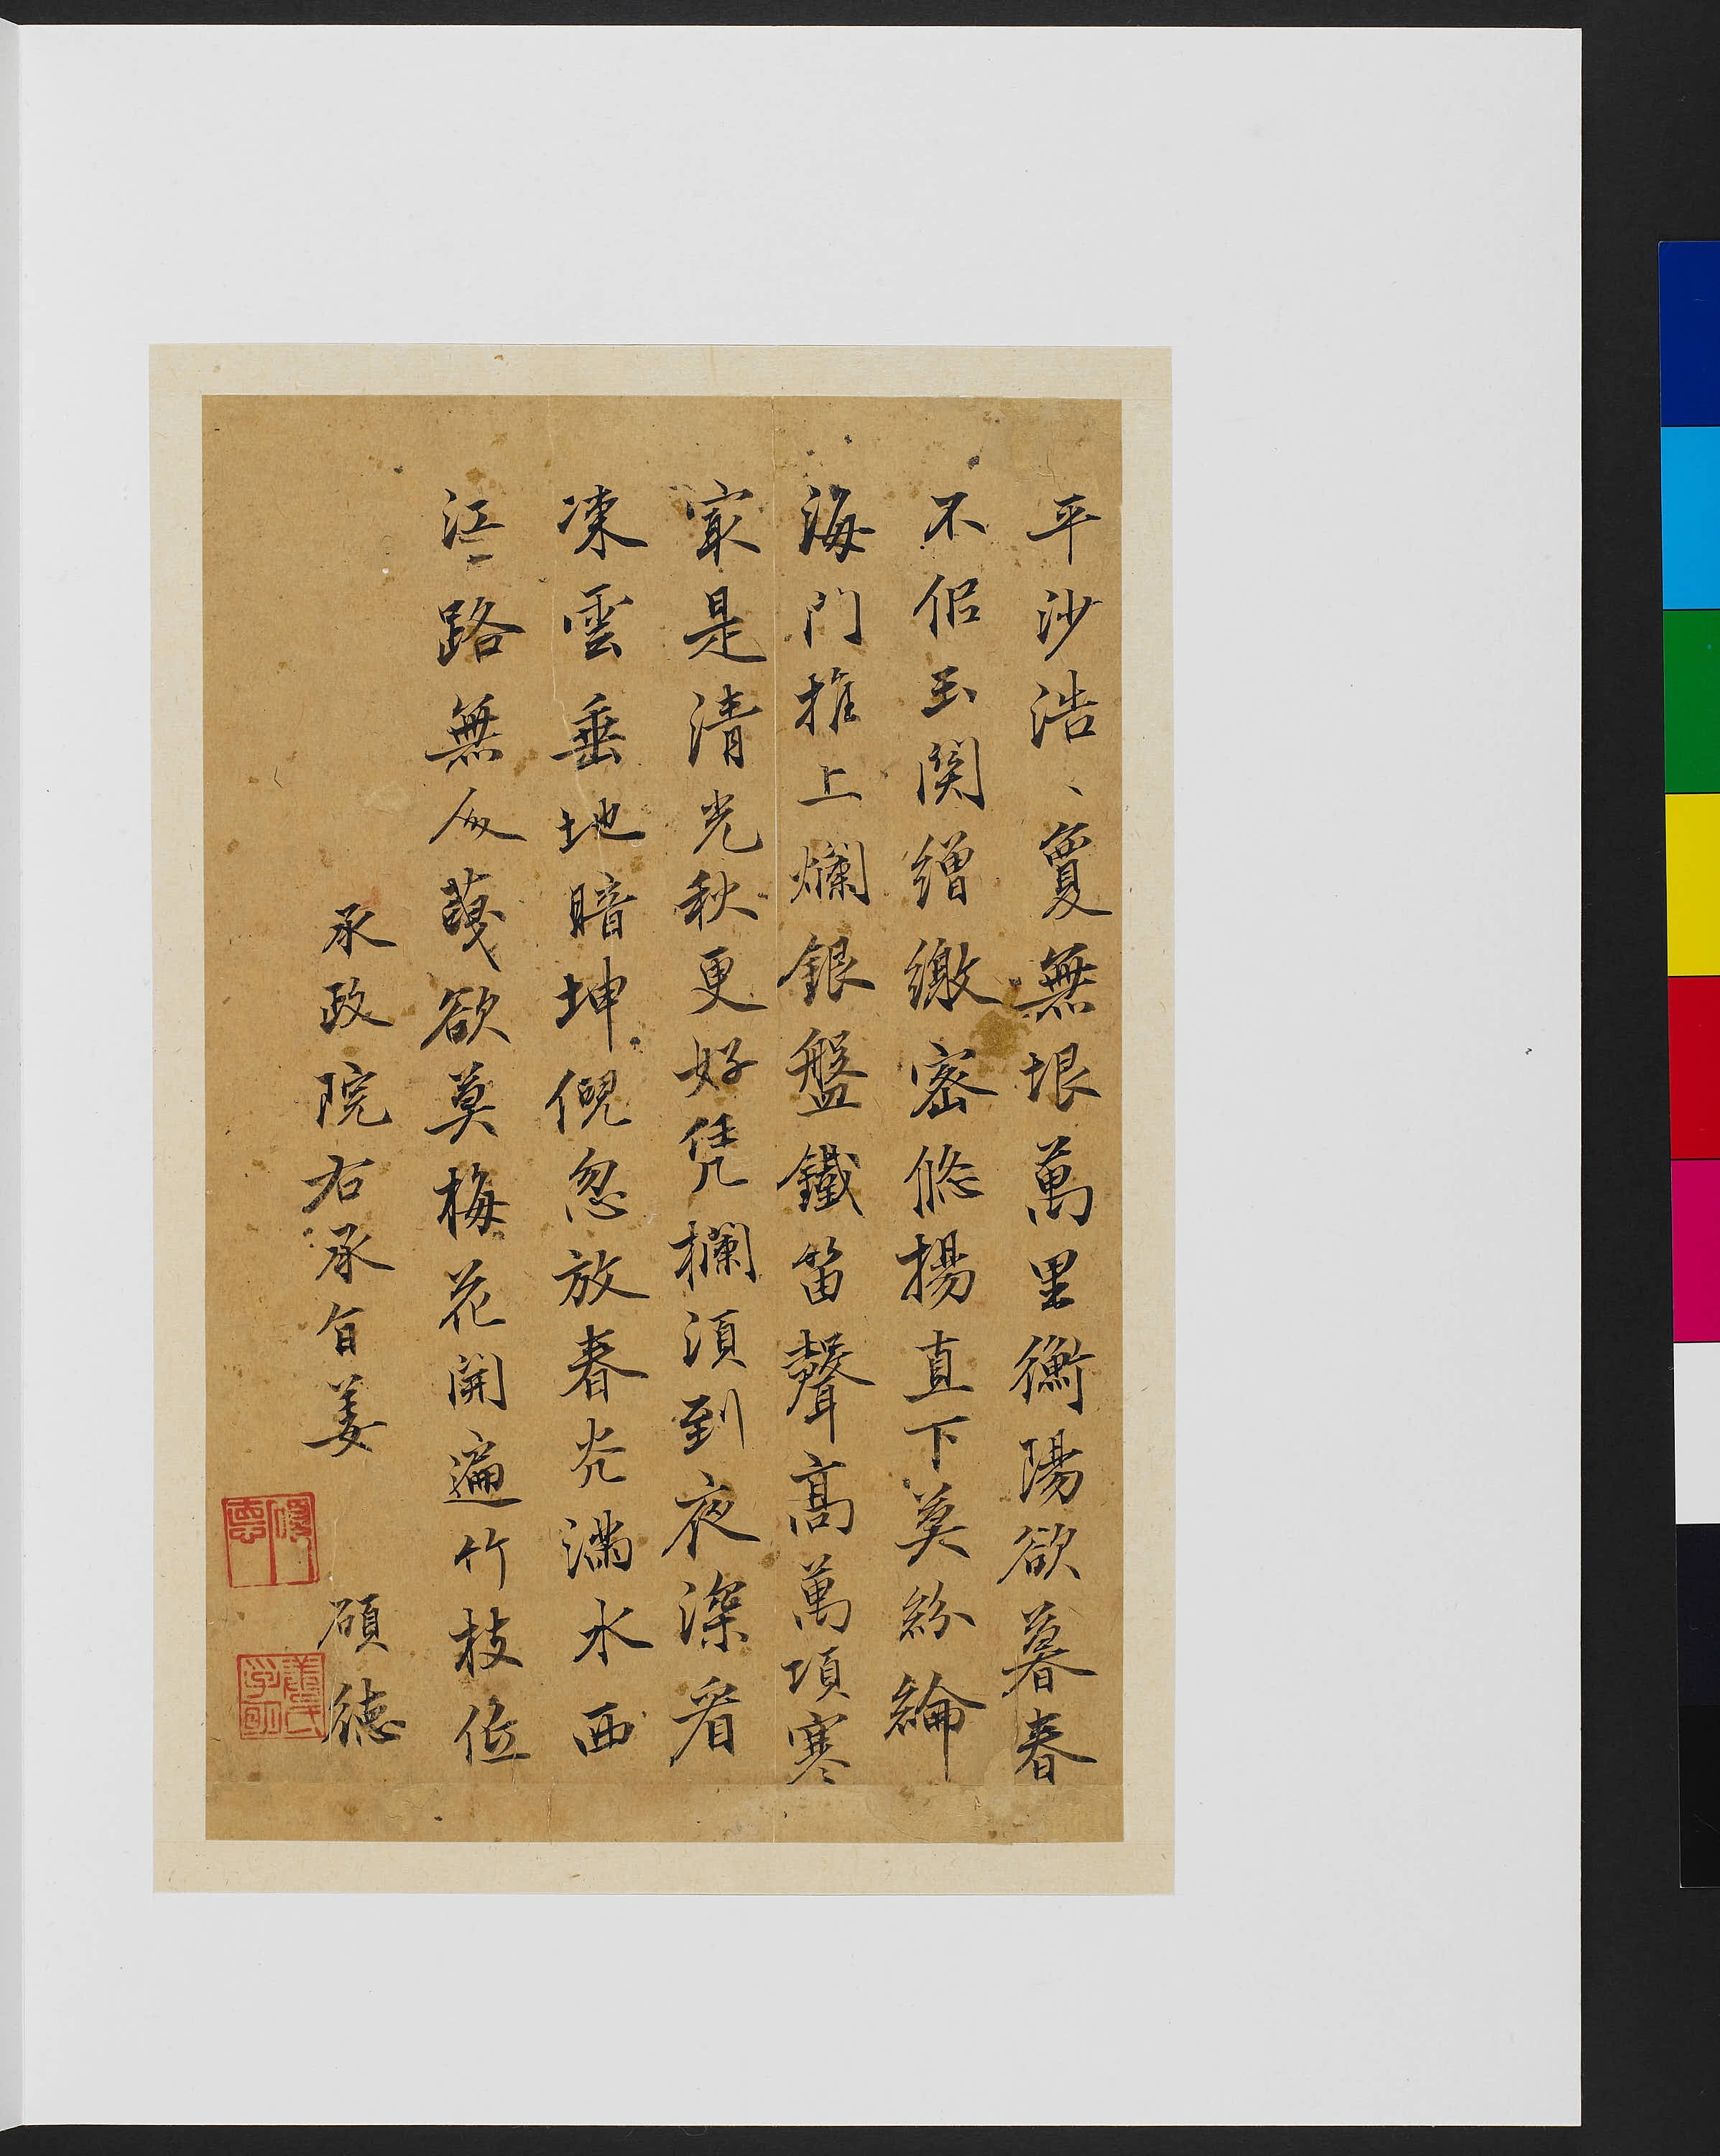 平沙浩〻夐無垠萬里衡陽欲暮春
不佀玉関繒繳密悠揚直下莫紛綸
海門推上爛銀盤鐵笛聲高萬頃寒
冣是清光秋更好凭欄須到夜深看
凍雲垂地暗坤倪忽放春光滿水西
江路無人欲莫梅花開遍竹枝低
承政院右承旨姜 碩德
碩悳
姜氏子明